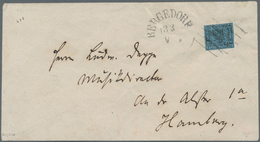 BERGEDORF
Herrn Ludw. Deppe
Musikdirector
An der Alster 1a
Hamburg.